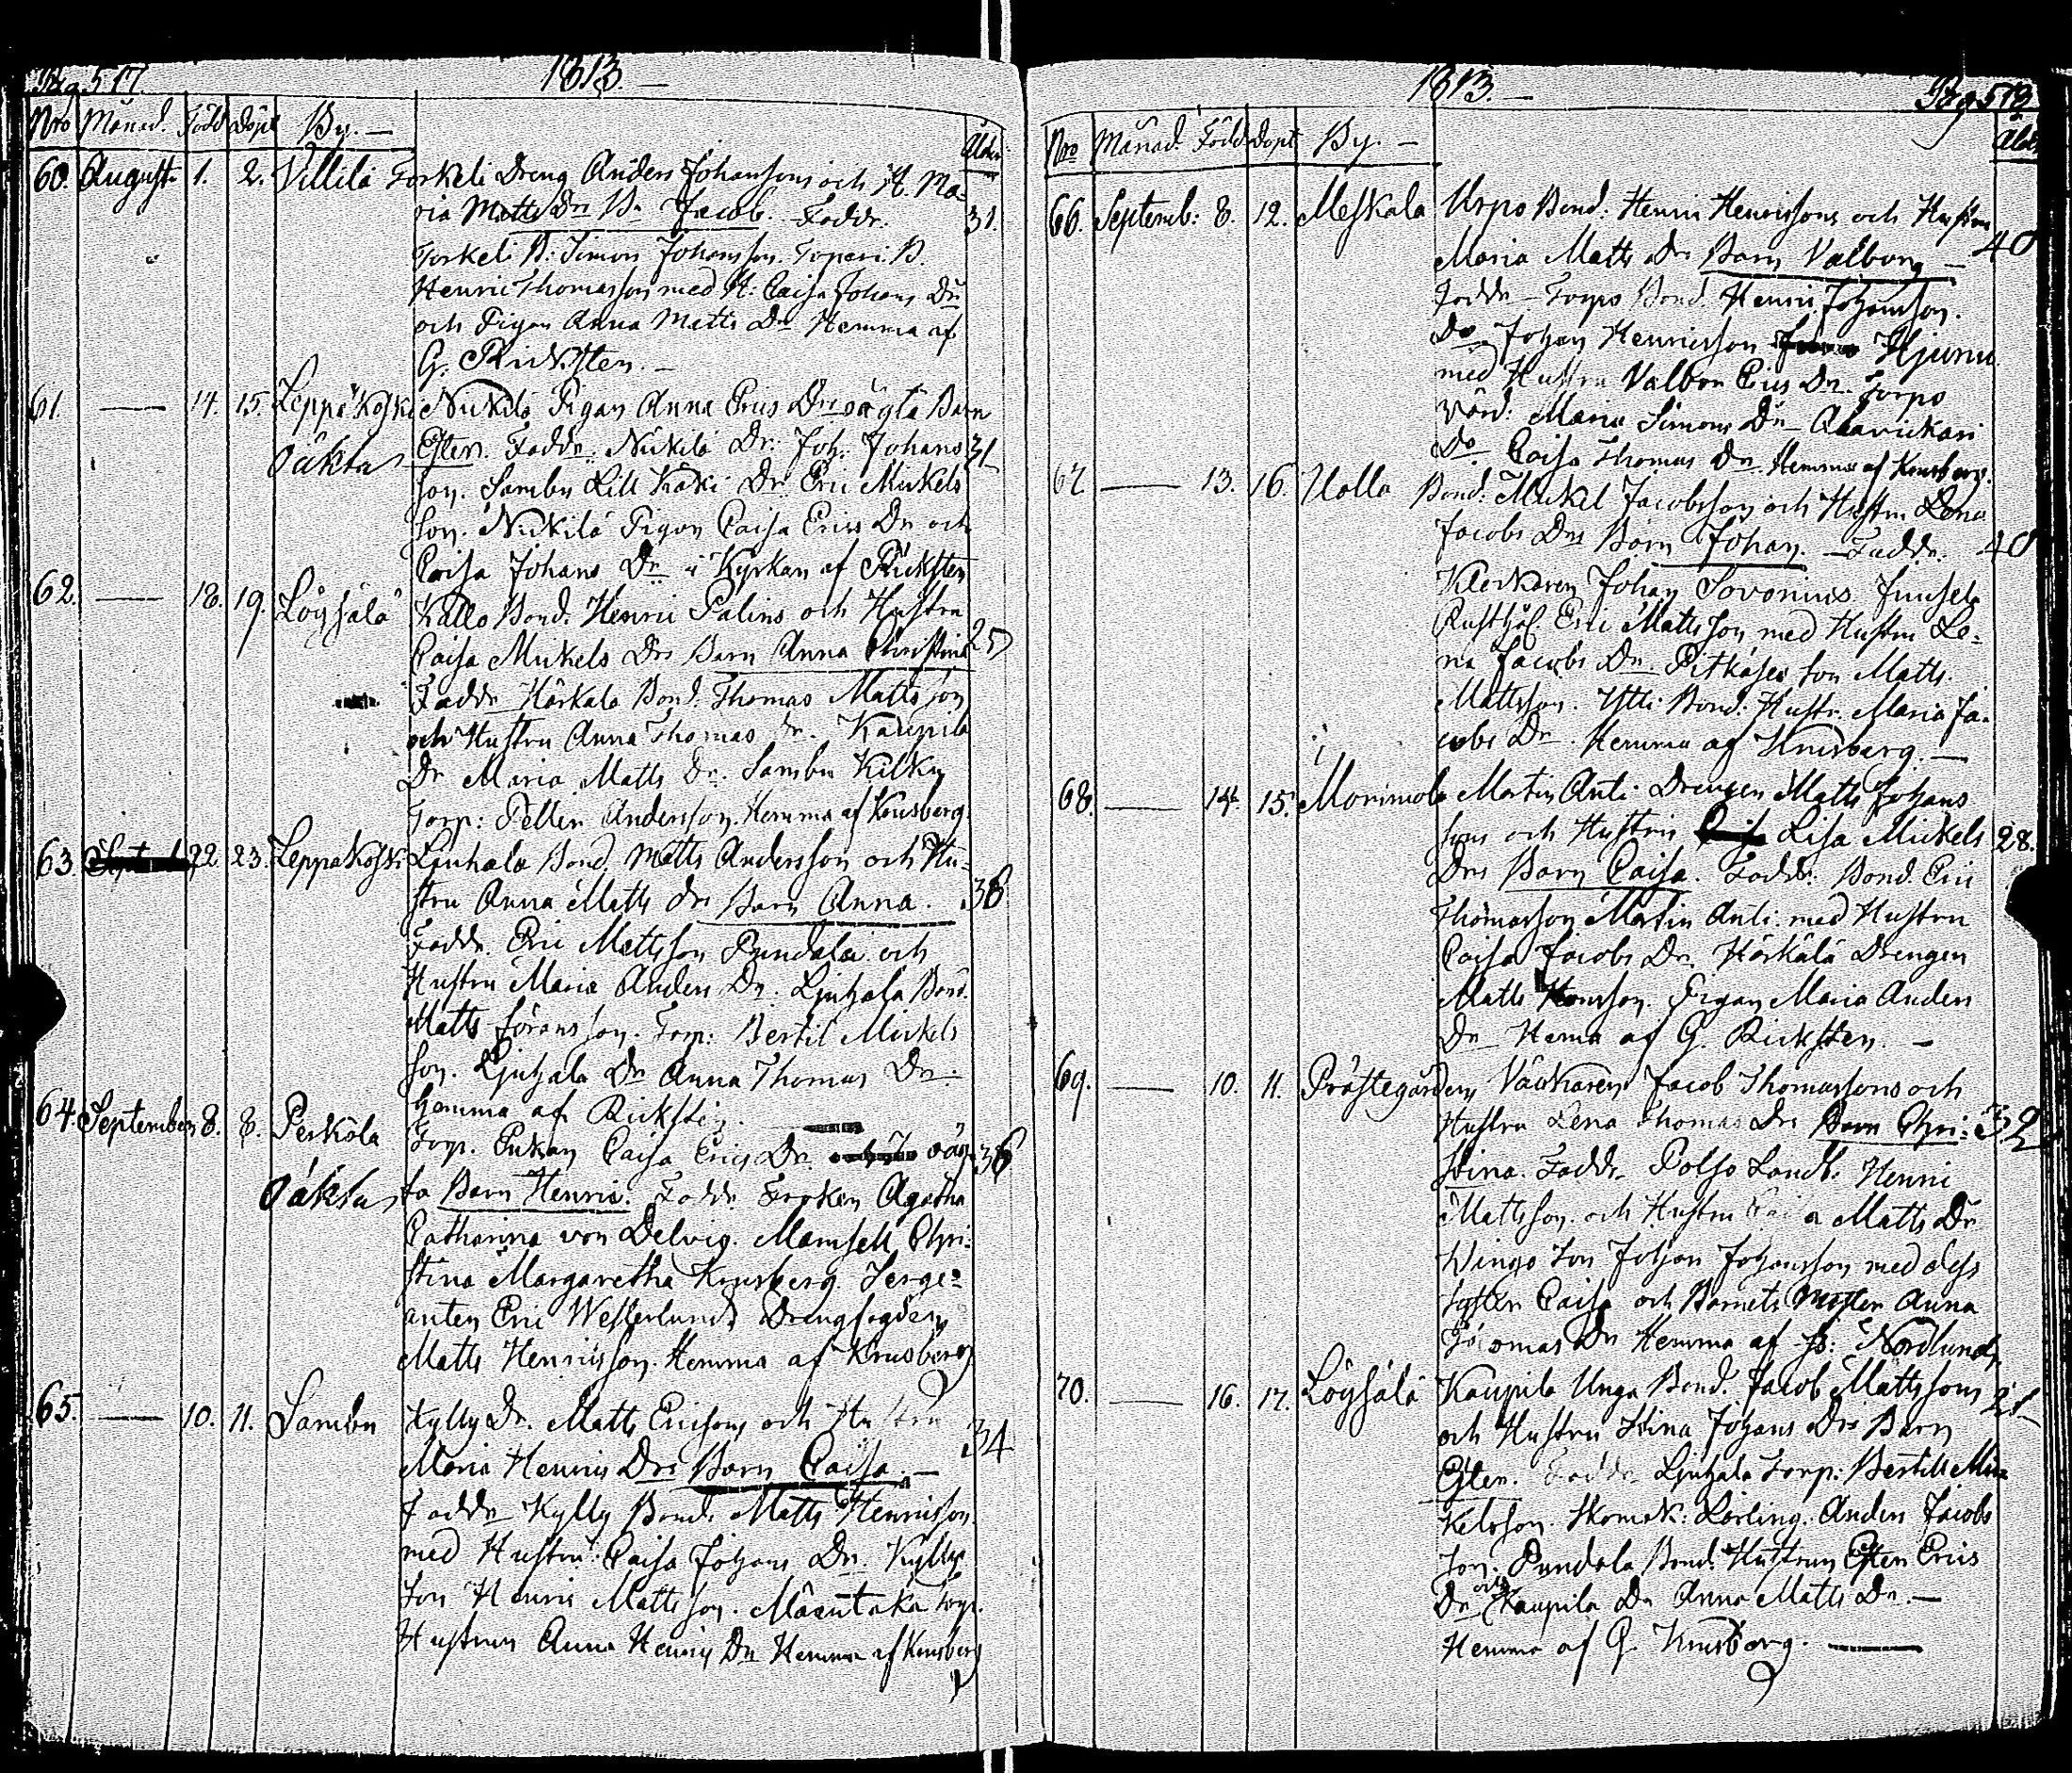 Pag. 517. 1813. —
Nro Månad. Född Döpt By. — Ålder
60. August 1. 2. Villilä Torkeli Dreng Anders Johanssons och H. Ma-
ria Matts Drs B. Jacob. Faddr. 31.
Torkeli B. Simon Johansson. Toperi B.
Henric Thomasson med H: Caisa Johans Dr
och Pigan Anna Matts Dr Hemma af
G. Ricksten. —
61. — 14. 15. Leppäkoski Nickilä Pigan Anna Erics Drs oägta Barn
Oäkta Ester. Faddr. Nickilä Dr: Joh: Johans 31
son. Sambu Lill Käki Dr. Eric Mickels
son. Nickilä Pigan Caisa Erics Dr och
Caisa Johans Dr i Kyrkan af Ricksten
62. — 18. 19. Löysälä Kallo Bond. Henric Palins och Hustru
Caisa Mickels Drs Barn Anna Christina 25
Faddr Härkälä Bond. Thomas Matts son
och Hustru Anna Thomas Dr. Kaupila
Dr Maria Matts Dr. Sambu Kilkin
Torp: Peller Andersson. Hemma af Krusberg.
63. 22 23. Leppäkoski Ljuhala Bond Matts Andersson och Hu-
stru Anna Matts drs Barn Anna. 38
Faddr. Eric Mattsson Pundala och
Hustru Maria Anders Dr. Ljuhala Bond.
Matts Göransson. Torp: Bertil Mickels
son. Ljuhala Dr Anna Thomas Dr:
Hemma af Ricksten.
64. September 8. 8. Perkola Torp. Caisa Erics Dr. oäg- 36
Oäkta ta Barn Henric. Faddr Fröken Agatha
Catharina von Delvig. Mamsell Chri-
stina Margaretha Krusberg Serge-
anten Eric Westerlund, Drengfogden
Matts Henricsson. Hemma af Krusberg
65. — 10. 11. Sambu Kylly Dr. Matts Ericsons och Hustru
Maria Henrics Drs Barn Caisa. — 34
Faddr Kylly Bond. Matts Henricsson.
med Hustru Caisa Johans Dr. Kylly
Son Henric Mattsson. Mäentaka Torp.
Hustrun Anna Henrics Dr Hemma af Krusberg
1813. — Pag 518
Nro Månad. Född Döpt By. — Ålder
66. Septemb: 8. 12. Meskala Urpo Bond: Henric Henricssons och Hustru
Maria Matts Drs Barn Valborg — 40
Faddr — Torpo Bond. Henric Johansson.
Do Johan Henricsson
med Hustru Valbor Erics Dr. Torpo
Värd: Maria Simons Dr Alavickari
Do Caisa Thomas Dr. Hemma af Krusberg.
67 — 13. 16. Ualla Bond. Mickel Jacobsson och Hustru Lena
Jacobs Drs Barn Johan. — Faddr. 40
Klockaren Johan Sovonius Junsela
Rusthål. Eric Mattsson med Hustru Le-
na Jacobs Dr. Pitkäjes Son Matts
Mattsson. Ylli Bond. Hustr. Maria Ja-
cobs Dr. Hemma af Krusberg. —
68. — 14. 15. Morimola Martin Anti Drengen Matts Johans
sons och Hustrus Lisa Mickels 28.
Drs Barn Caisa. Faddr. Bond. Eric
Thomasson Martin Anti. med Hustru
Caisa Jacobs Dr. Härkälä Drengen
Matts Pigan Maria Anders
Dr Hemma af G. Ricksten. —
69. — 10. 11. Prästegården Väckaren Jacob Thomassons och
Hustru Lena Thomas Drs Barn Chri- 32
stina. Faddr. Polso Landb. Henric
Mattsson och Hustru Caisa Matts Dr.
Wingo Son Johan Johansson med dess
Syster Caisa och Barnets Moster Anna
Thomas Dr Hemma af B: Nordlund.
70. — 16. 17. Löysälä Kaupila Unga Bond. Jacob Mattssons 21
och Hustru Stina Johans Drs Barn
Ester. Faddr. Ljuhala Torp: Bertill Mic-
kelsson. Skomak: Lärling. Anders Jacobs
son. Pundala Bond. Hustrun Ester Erics
Dr och Kaupila Dr Anna Matts Dr. —
Hemma af G. Krusberg. —